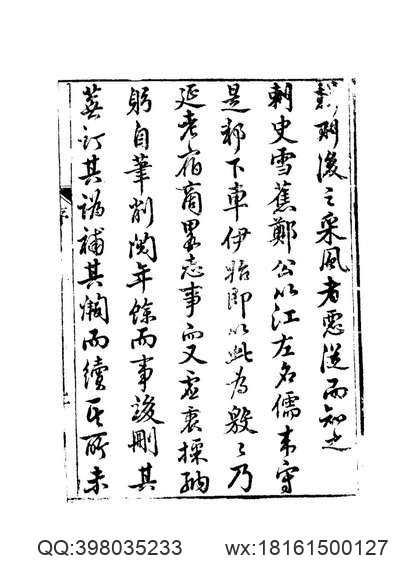 明後之采風者惡從而知之
刺史雪蕉鄭公以江左名儒来守
是郡下車伊始即以此為殷〻乃
延老宿商畧志事而又虛衷採納
躬自筆削閱年餘而事竣刪其
蕪訂其譌補其闕而續其所未
序
QQ:398035233
wx:18161500127